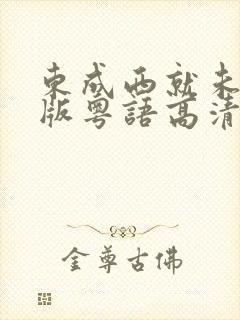 東成西就未
版粵語高清
金尊古佛